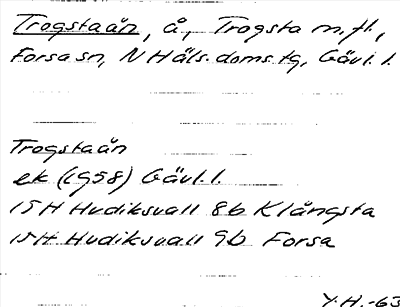 Trogstaån, å, Trogsta m.fl.,
Forsa sn, N Häls. doms. tg, Gävl. l.
Trogstaån
ek (1958) Gävl. l.
15H Hudiksvall 8b Klångsta
15H Hudiksvall 9b Forsa
Y.H.-63